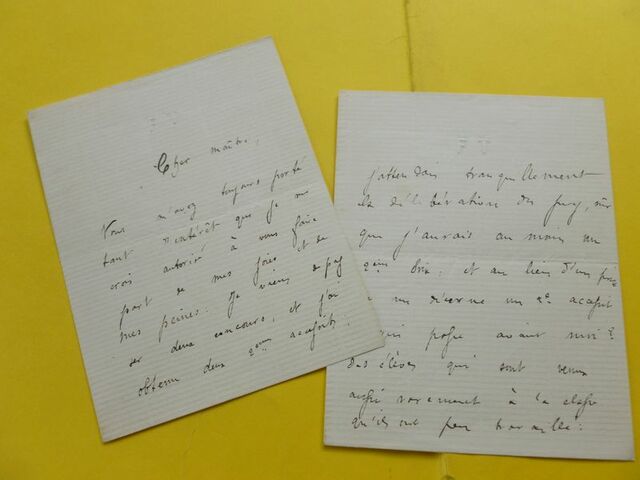 Cher maître,
Vous m'avez toujours porté
tant d'intérêt que je me
crois autorisé à vous faire
part de mes joies et de
mes peines. Je viens de pas
ser deux concours, et j'ai
obtenu deux 2èmes accessits,
j'attendais tranquillement
la délibération du jury, sûr
que j'aurais au moins un
2ème prix; et au lieu d'un prix
un décerne un 2e accessit
qui passe avant moi?
Des élèves qui sont venus
aussi rarement à la classe
qu'ils ont peu travaillé: